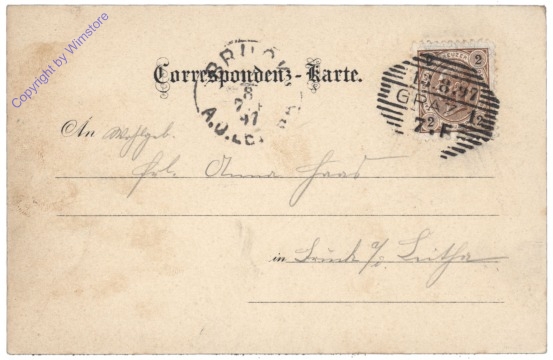 Copyright by Wimstore
2
Correspondenz-Karte.
BRUCK
8
97
A.D.LEITHA
13.8.97
GRAZ 1
7 2 F
An Wohlgeb.
Frl. Anna Haas
in Bruck a/d Leitha